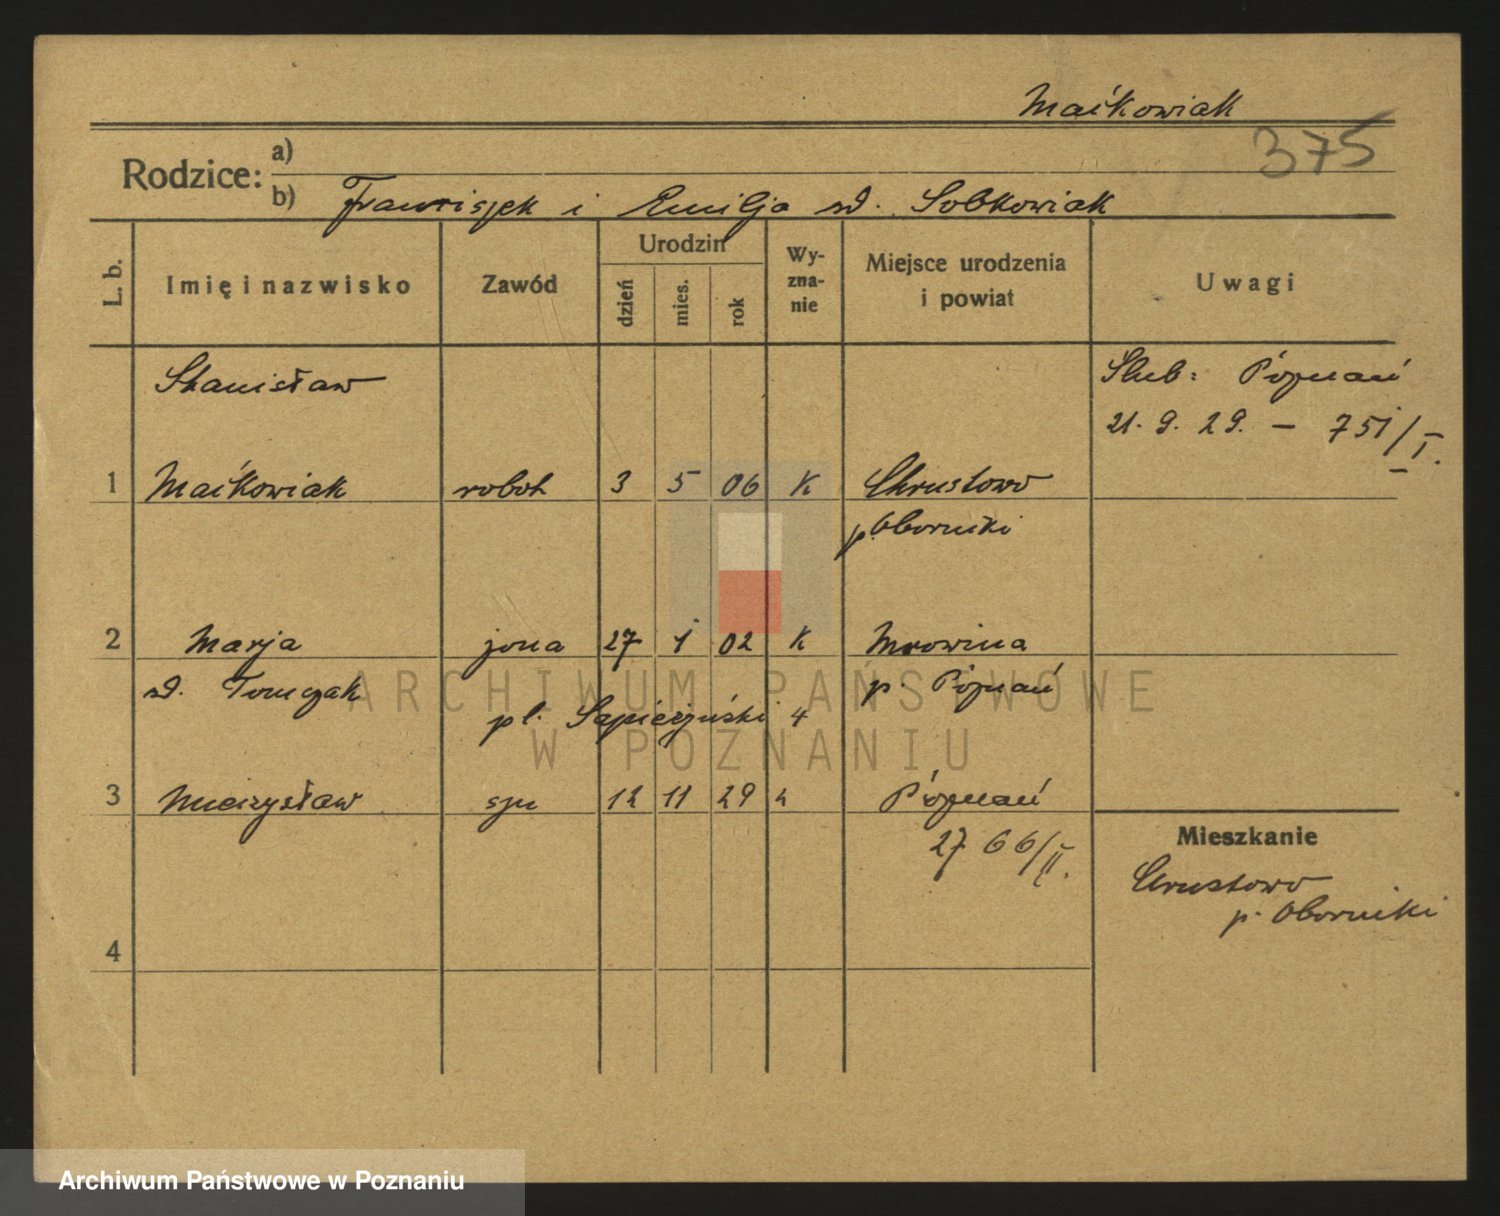 Maćkowiak
375
Rodzice: a)
b) Franciszek i Emilja zd. Sobkowiak
L. b. Imię i nazwisko Zawód Urodzin dzień mies. rok Wy-zna-nie Miejsce urodzenia i powiat Uwagi
Stanisław Ślub: Poznań
21. 9. 29. — 751/I.
1 Maćkowiak robot 3 5 06 K Chrustowo
p. Oborniki
2 Marja żona 27 1 02 K Mrowina
zd. Tomczak p. Poznań
pl. Sapieżyński 4
ARCHIWUM PAŃSTWOWE
W POZNANIU
3 Mieczysław syn 12 11 29 k Poznań
2766/II.
Mieszkanie
Chrustowo
p. Oborniki
4
Archiwum Państwowe w Poznaniu